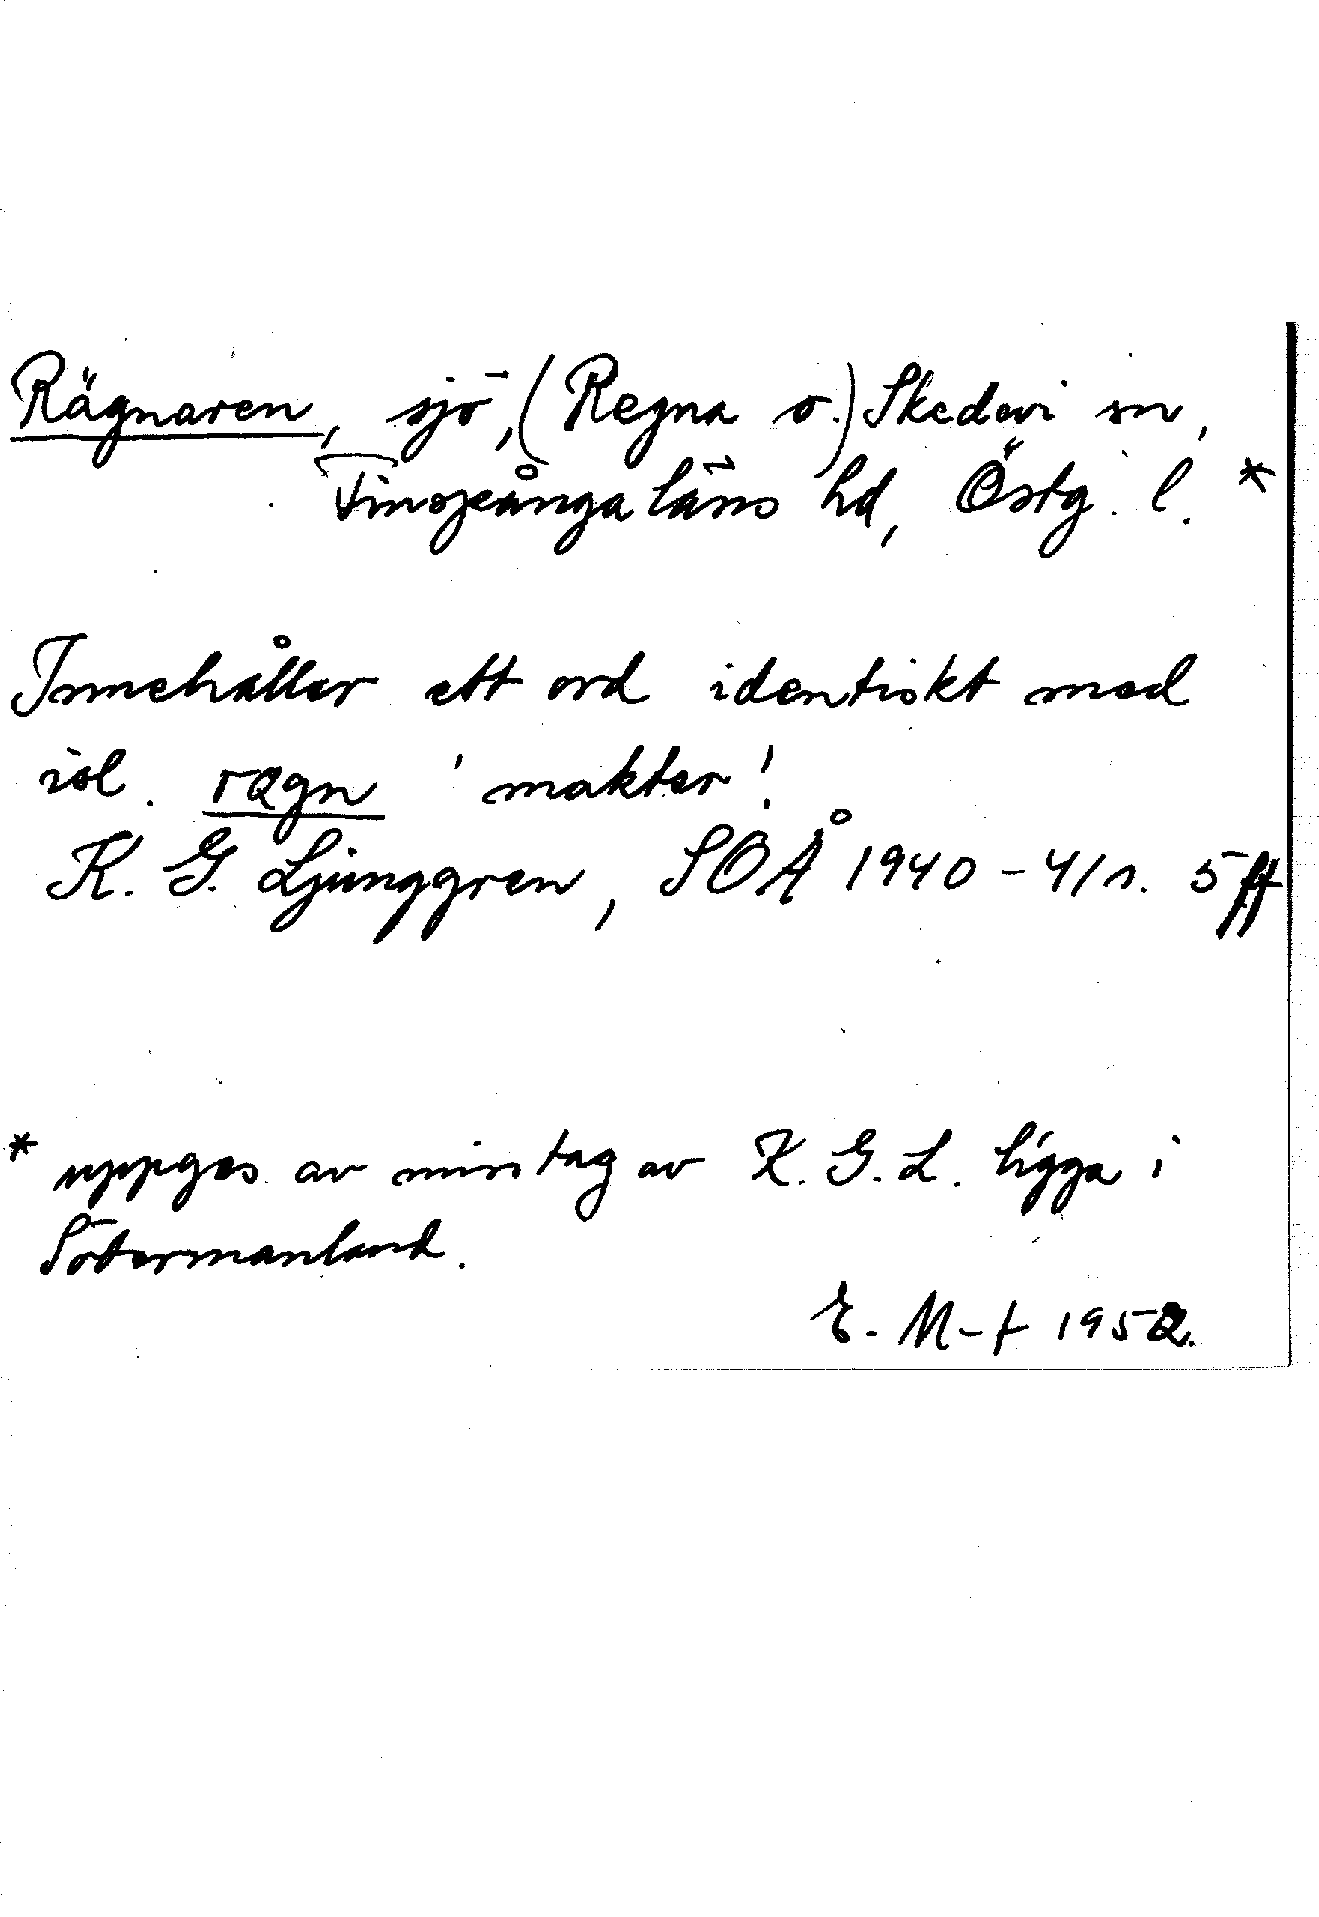 Rägnaren, sjö, (Regna o.) Skedevi sn,
Finspånga läns hd, Östg. l. *
Innehåller ett ord identiskt med
isl. ragn 'makter'.
K. G. Ljunggren, SOÅ 1940-41 s. 5 ff
* uppges av misstag av K. G. L. ligga i
Södermanland.
E. M-t 1952.